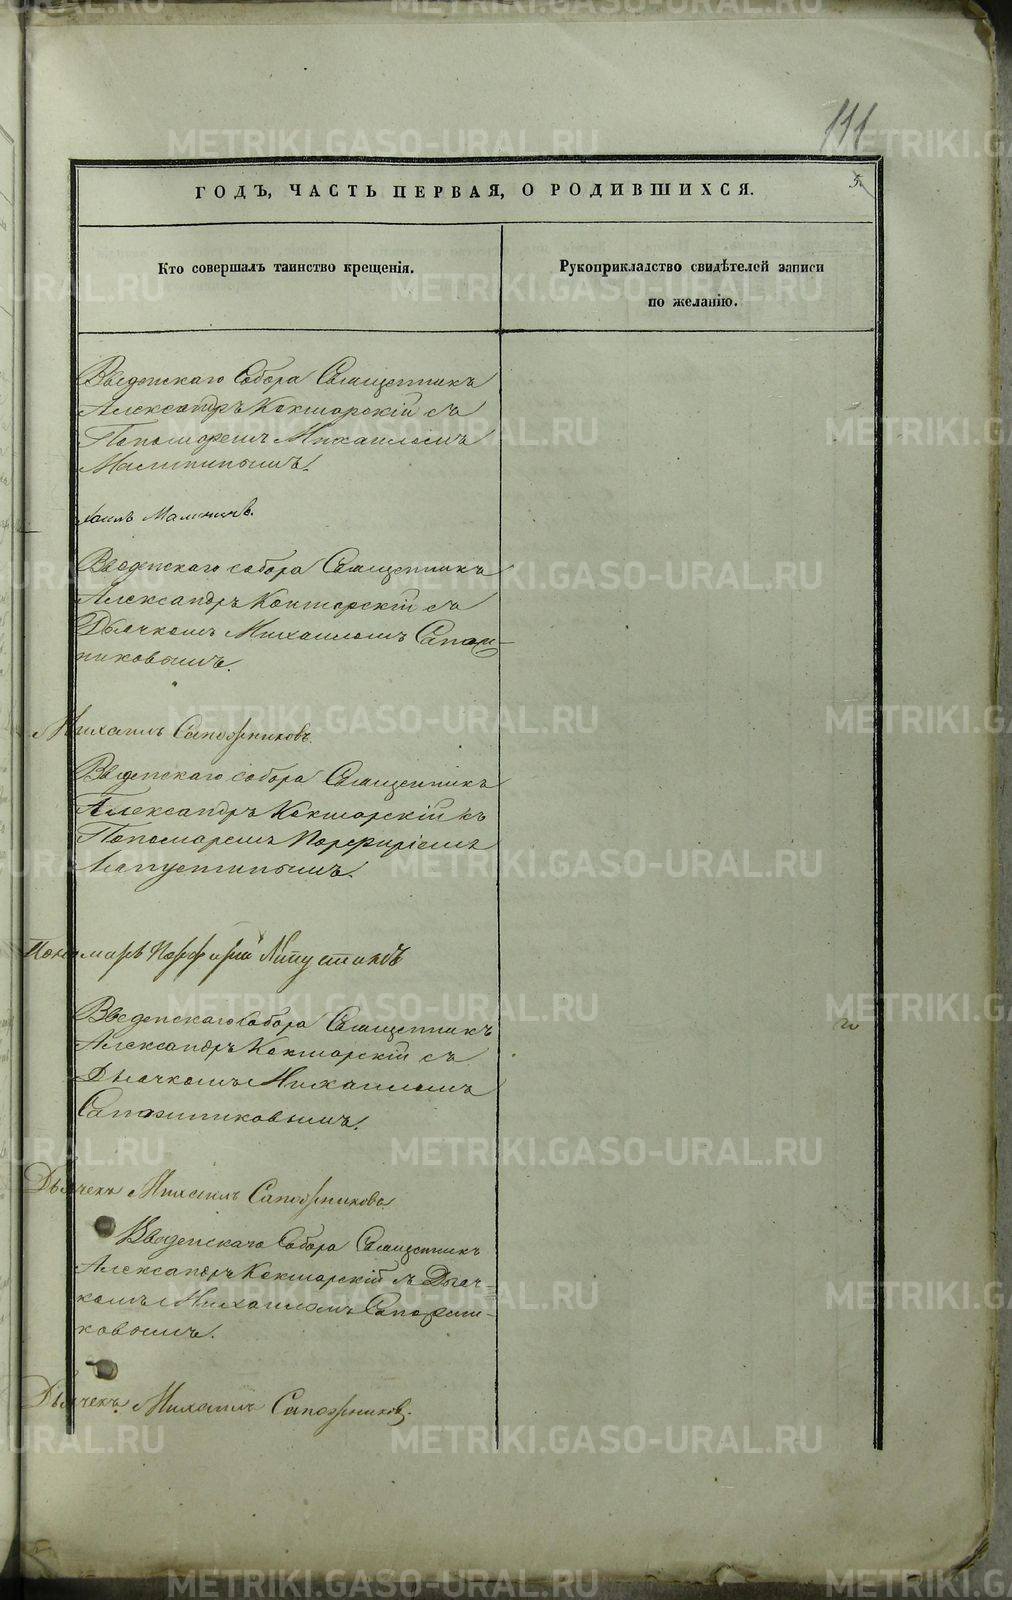 111
5.
ГОДЪ, ЧАСТЬ ПЕРВАЯ, О РОДИВШИХСЯ.
Кто совершалъ таинство крещенія.
Рукоприкладство свидѣтелей записи
по желанію.
Введенскаго Собора Священникъ
Александръ Кокшарскій съ
Пономаремъ Михаиломъ
Малининымъ.
Малининъ.
Введенскаго собора Священникъ
Александръ Кокшарскій съ
Дьячкомъ Михаиломъ Сапож-
никовымъ.
Михаилъ Сапожниковъ.
Введенскаго собора Священникъ
Александръ Кокшарскій съ
Пономаремъ Порфиріемъ
Лапустинымъ.
Пономарь Порфирій Лапустинъ
Введенскаго Собора Священникъ
Александръ Кокшарскій съ
Дьячкомъ Михаиломъ
Сапожниковымъ.
Дьячекъ Михаилъ Сапожниковъ.
Введенскаго Собора Священникъ
Александръ Кокшарскій съ Дьяч-
комъ Михаиломъ Сапожни-
ковымъ.
Дьячекъ Михаилъ Сапожниковъ.
METRIKI.GASO-URAL.RU